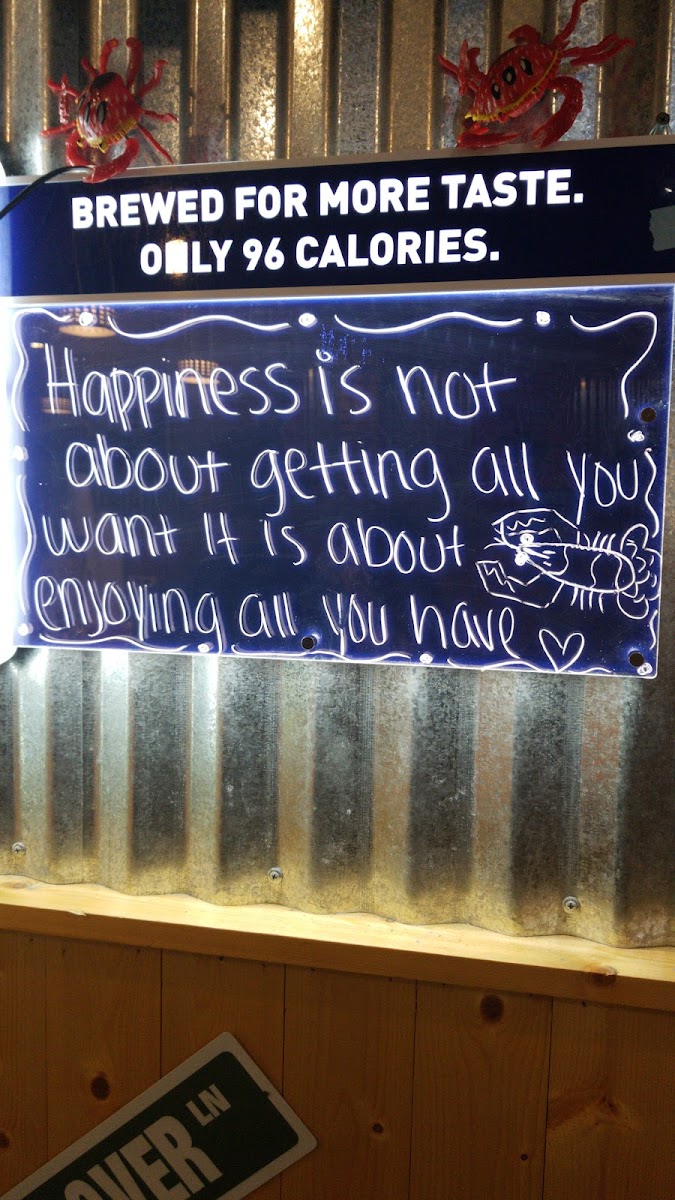 BREWED FOR MORE TASTE.
O LY 96 CALORIES.
Happiness is not
about getting all you
want It is about
enjoying all you have
LN